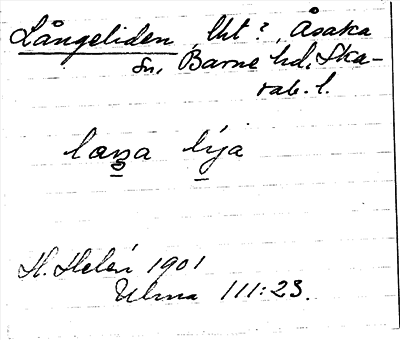 Långeliden, Ut?, Åsaka
sn, Barne hd, Ska-
rab. l.
laŋa lija
H. Helén 1901
Ulma 111:23.